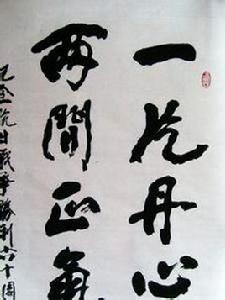 一片丹心
两間正氣
纪念抗日战争勝利六十周